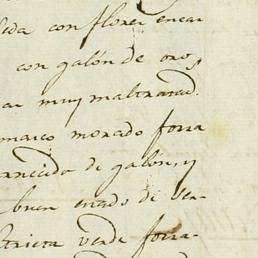 seda con flores encar
con galón de oro,
muy maltratad.
masco morado forra
arnecida de galon, y
buen estado de ser-
trieta verde forra-
de